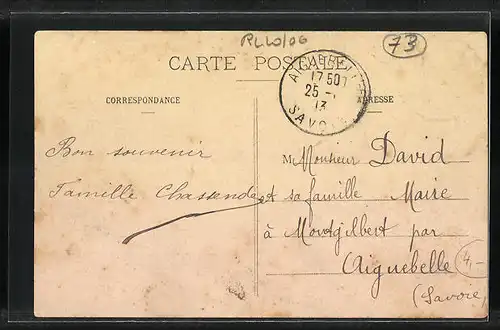 PLW/06
73
CARTE POSTALE
AIGUEBELLE
17 50
25 -
13
SAVOIE
CORRESPONDANCE
ADRESSE
Bon souvenir
Famille
M Monsieur David
et sa famille Maire
à Montgilbert par
Aiguebelle
(Savoie)
4,-